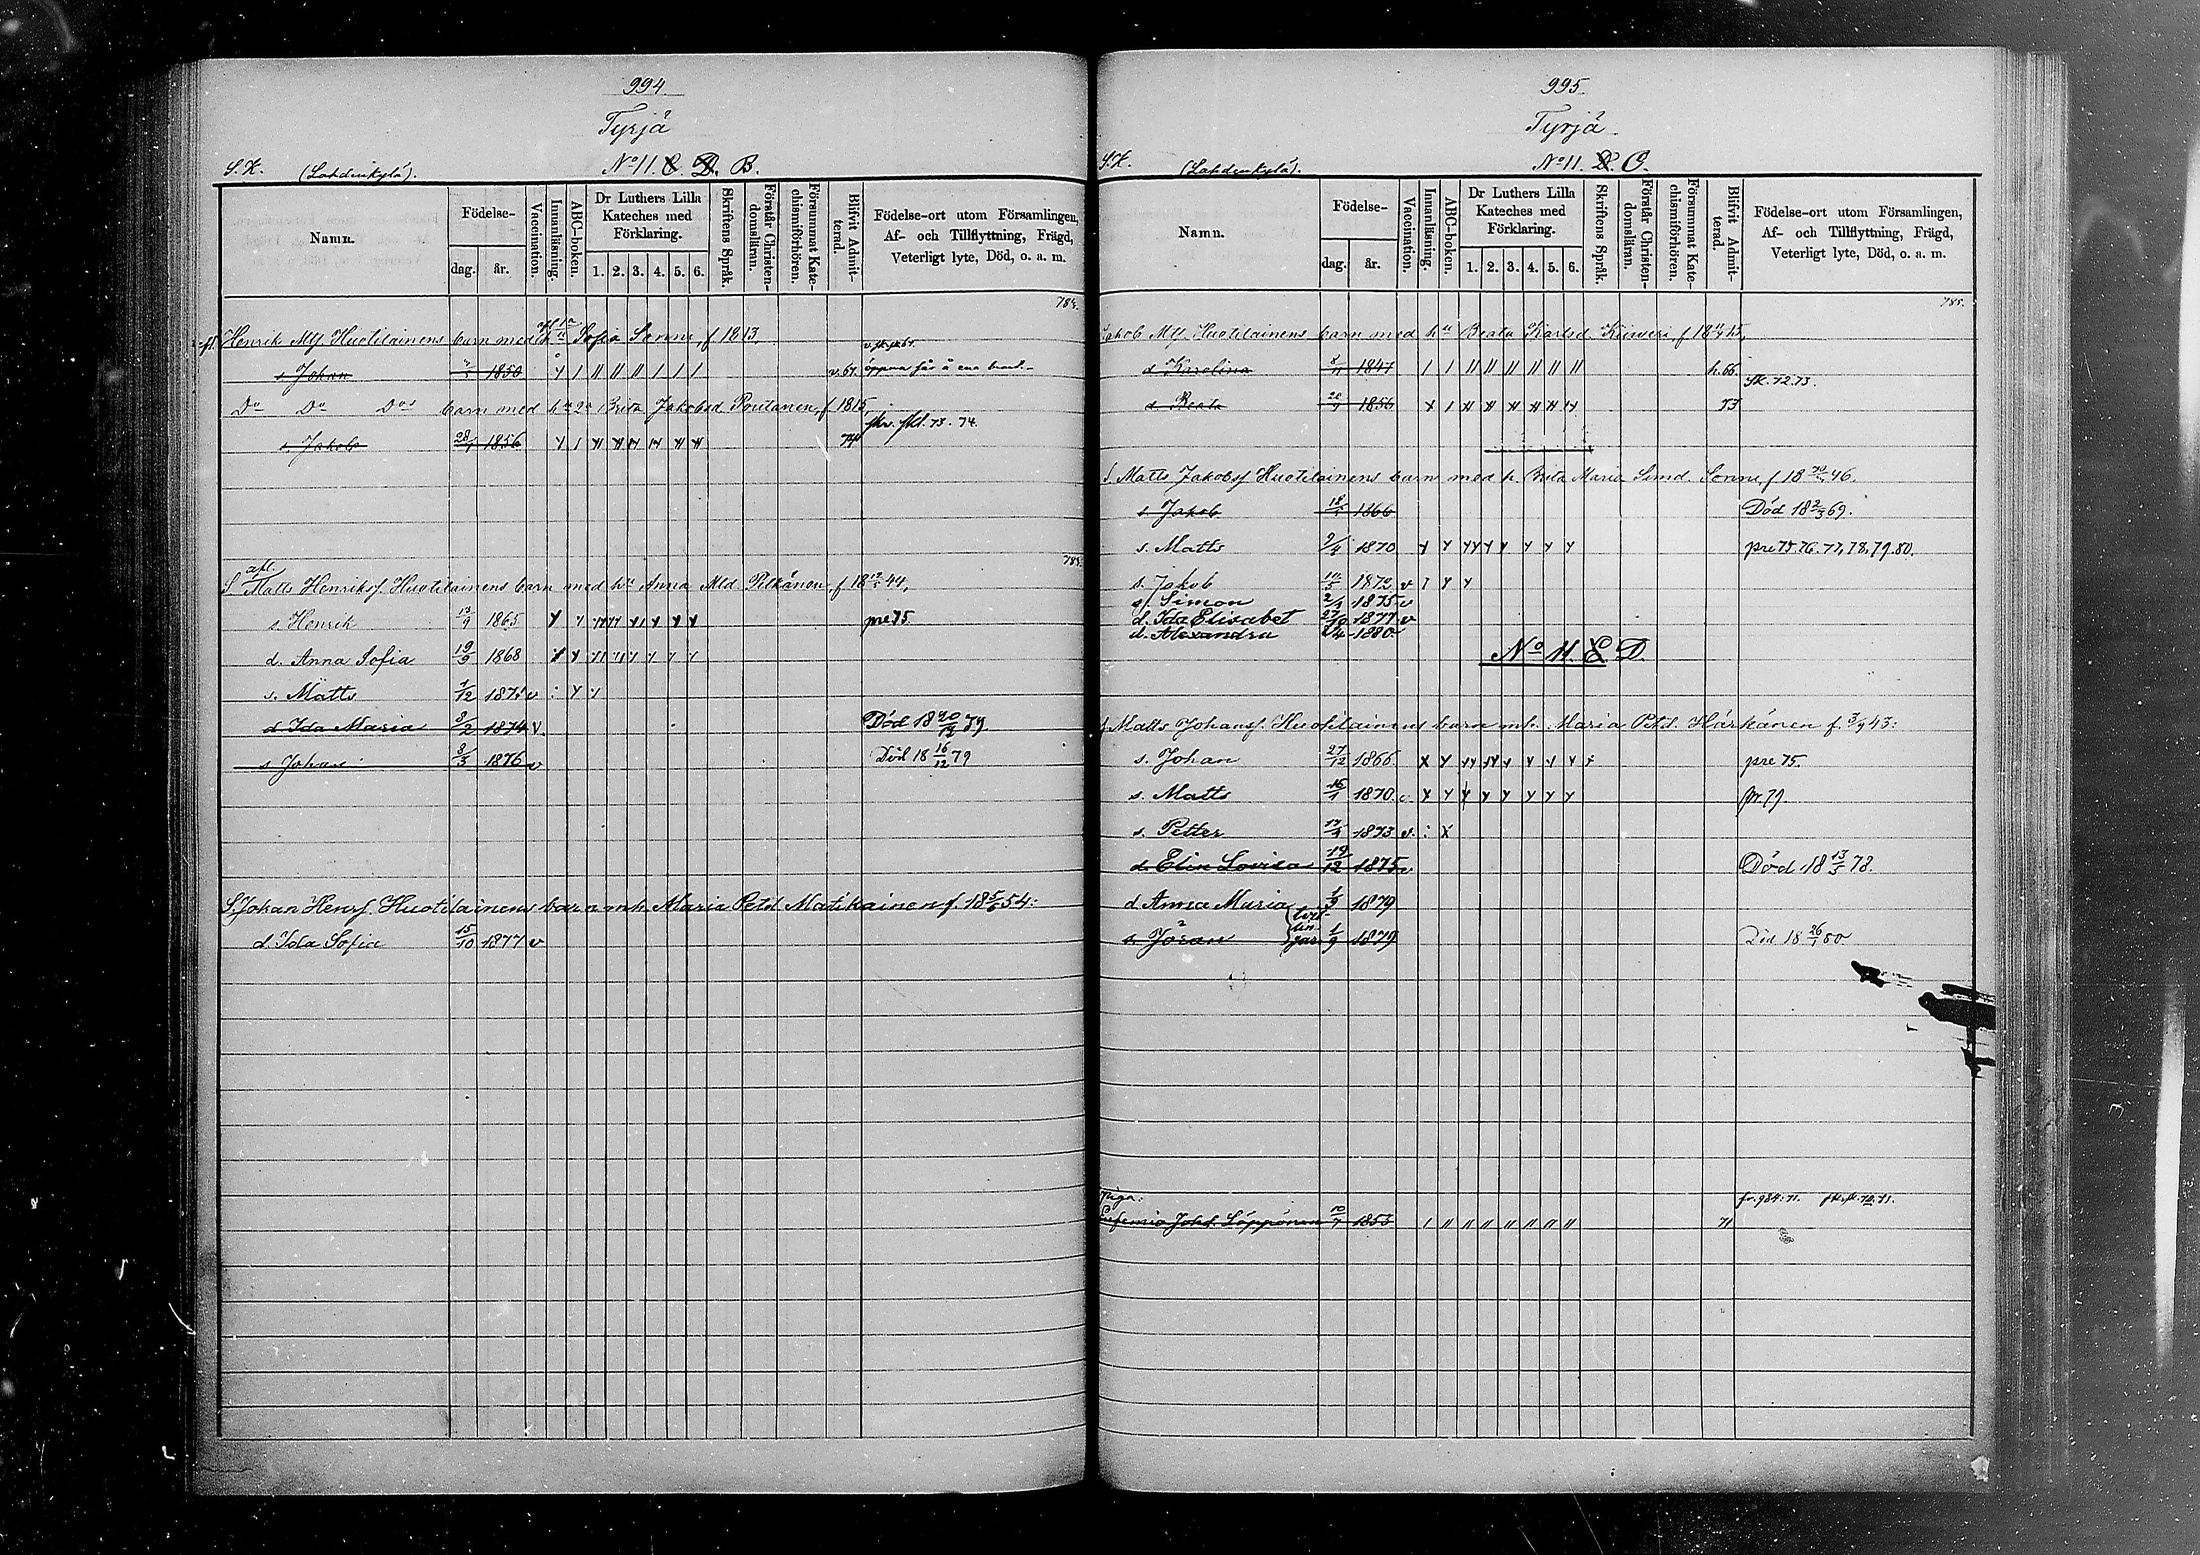 994
Tyrjä
S.K. (Lahdenkylä). No 11. C. D. B.
Namn.
Födelse-
dag. år.
Vaccination.
Innanläsning.
ABC-boken.
Dr Luthers Lilla
Kateches med
Förklaring.
1. 2. 3. 4. 5. 6.
Skriftens Språk.
Förstår Christen-
domsläran.
Försummat Kate-
chismiförhören.
Blifvit Admit-
terad.
Födelse-ort utom Församlingen,
Af- och Tillflyttning, Frägd,
Veterligt lyte, Död, o. a. m.
784.
Henrik Mtss Huotilainens barn med h Sofia Sonni, f 1813.
s. Johan 1850 v. 67.
Do Do Dos barn med hu 2a Brita Jakobsd. Poutanen, f 1815
s. Jakob 28/1 1856 74
784.
afl.
S Matts Henrikss. Huotilainens barn med hu Anna Mtd. Pitkänen, f 18 44,
s. Henrik 13/9 1865 pre 75.
d. Anna Sofia 19/9 1868
s. Matts 1/12 1871 v
d Ida Maria 3/2 1874 v. Död 18 20/12 79
s Johan 3/3 1876 v Död 18 16/12 79
S. Johan Henrs. Huotilainens barn mh. Maria Petd Matikainen f. 18 5/6 54:
d. Ida Sofia 15/10 1877 v
995.
Tyrjä.
S.K. (Lahdenkylä). No 11. D. C.
Namn.
Födelse-
dag. år.
Vaccination.
Innanläsning.
ABC-boken.
Dr Luthers Lilla
Kateches med
Förklaring.
1. 2. 3. 4. 5. 6.
Skriftens Språk.
Förstår Christen-
domsläran.
Försummat Kate-
chismiförhören.
Blifvit Admit-
terad.
Födelse-ort utom Församlingen,
Af- och Tillflyttning, Frägd,
Veterligt lyte, Död, o. a. m.
785.
Jakob Mtss. Huotilainens barn med hu Beata Karlsd. Kiiveri, f 18
d Karolina 1847 h. 66.
d. Beata 20/9 1856 73 sk. 72. 73.
S. Matts Jakobss Huotilainens barn med h. Brita Maria Simd. Sonni, f 18 46.
s. Jakob 1866 Död 18 2/3 69.
s. Matts 9/4 1870 pre 75. 76. 77, 78, 79. 80.
s. Jakob 1872 v
s. Simon 2/1 1875 v
d. Ida Elisabet 27/10 1877 v
d. Alexandra 1880
No 11. E. D.
S Matts Johanss. Huotilainens barn mh. Maria Petd. Härkänen f. 3/9 43:
s. Johan 27/12 1866. pre 75.
s. Matts 16/1 1870. v pr. 79.
s. Petter 17/4 1873 v.
d. Elin Lovisa 19/12 1875 v Död 18 13/5 78.
d Anna Maria 1/9 1879
s. Jöran 1/9 1879 Död 18 26/1 80
tvil-
lin-
gar
Piga: fr. 984: 71.
Eufemia Johd. Säppänen 10/7 1853 71